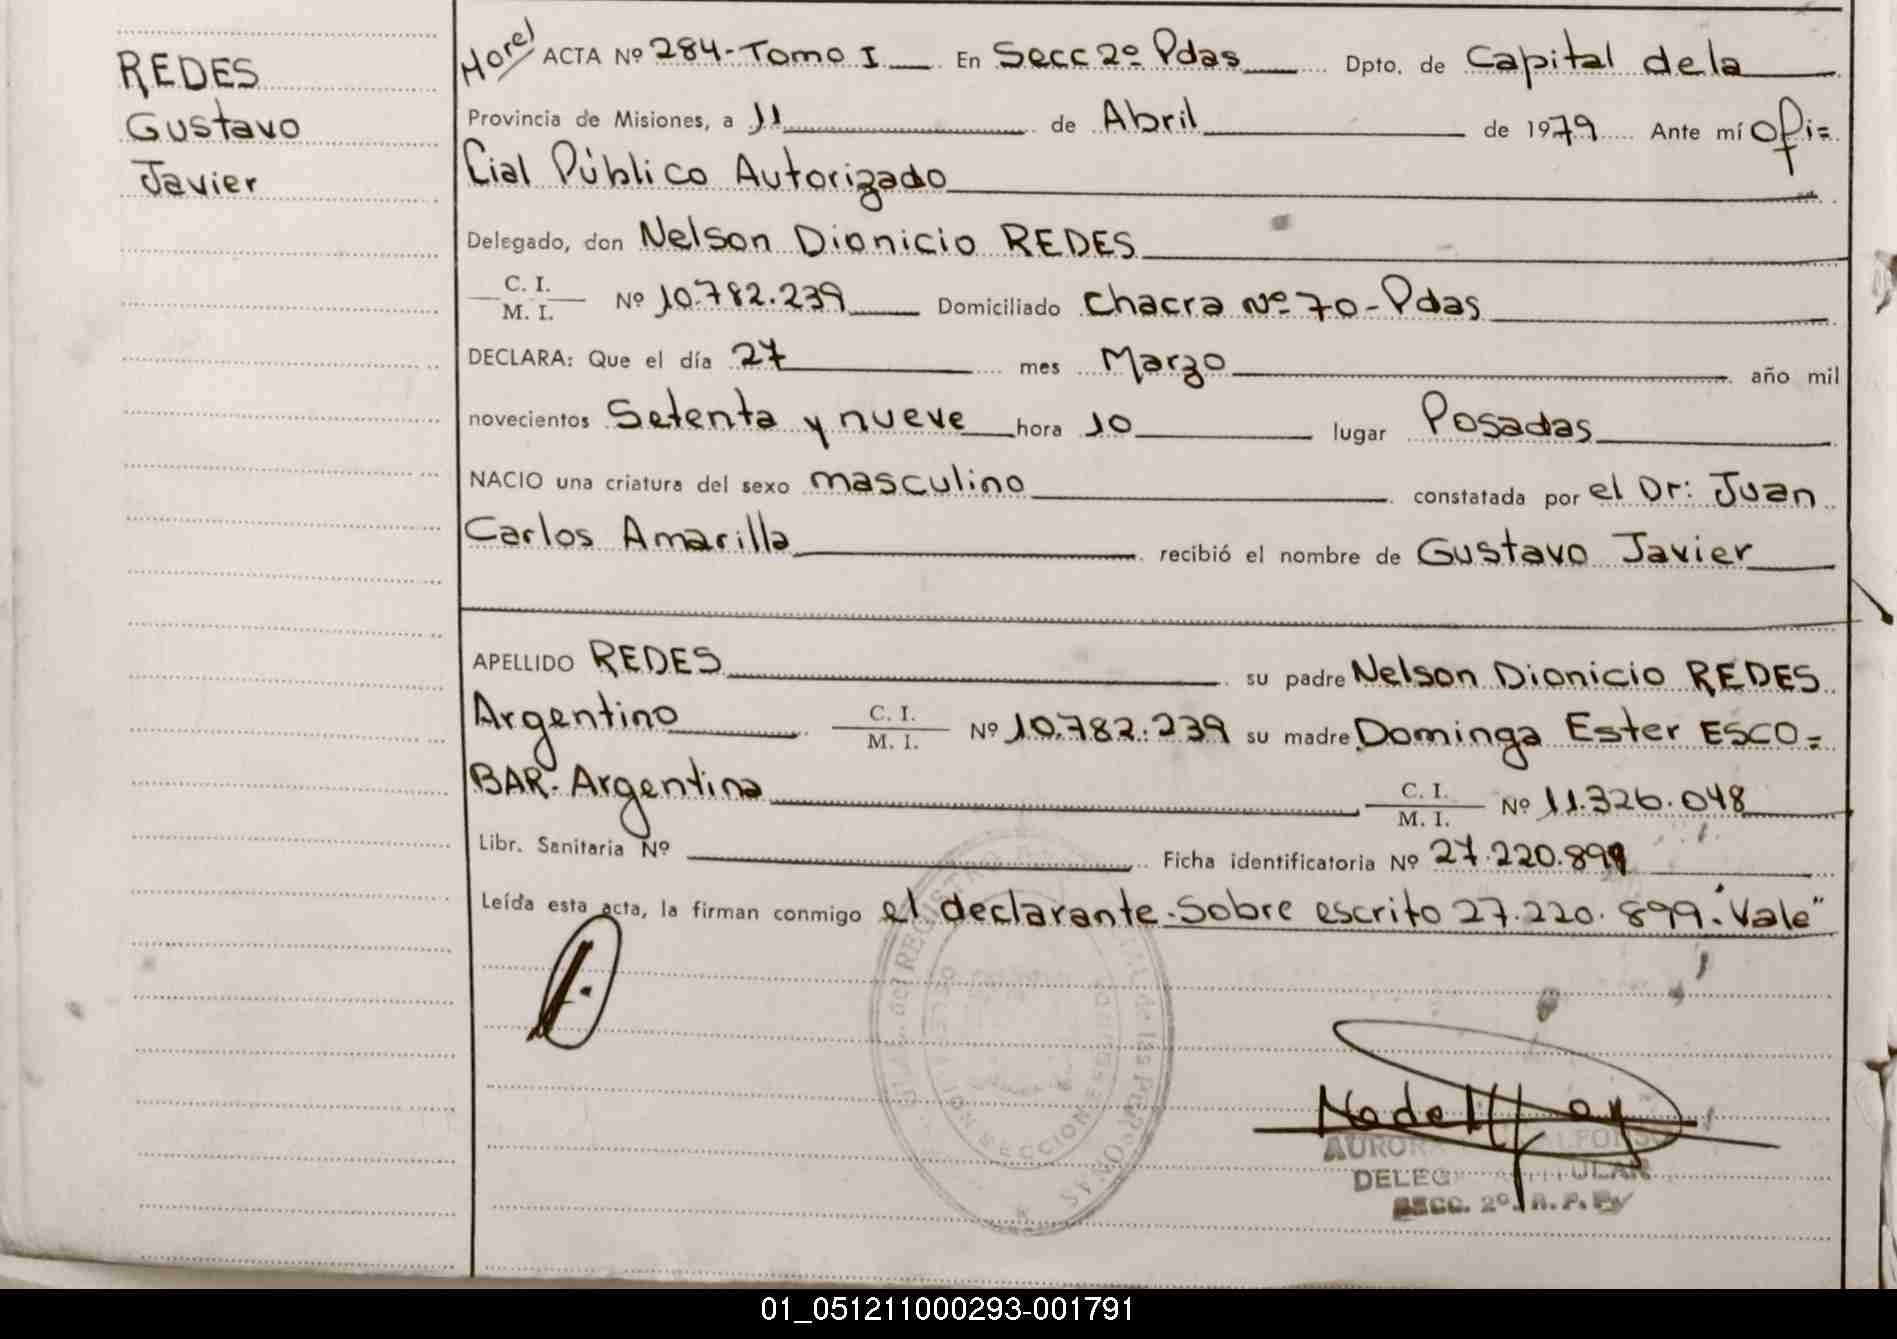 REDES
Gustavo
Javier
ACTA Nº 284-Tomo I En Secc 2º Pdas Dpto. de Capital de la
Provincia de Misiones, a 11 de Abril de 1979 Ante mí Ofi=
cial Público Autorizado
Delegado, don Nelson Dionicio REDES
C. I.
M. I. Nº 10.782.239 Domiciliado Chacra Nº 70-Pdas
DECLARA: Que el día 27 mes Marzo año mil
novecientos Setenta y nueve hora 10 lugar Posadas
NACIO una criatura del sexo masculino constatada por el Dr: Juan
Carlos Amarilla recibió el nombre de Gustavo Javier
APELLIDO REDES su padre Nelson Dionicio REDES
Argentino C. I.
M. I. Nº 10.782.239 su madre Dominga Ester ESCO=
BAR- Argentina C. I.
M. I. Nº 11.326.048
Libr. Sanitaria Nº Ficha identificatoria Nº 27.220.899
Leída esta acta, la firman conmigo el declarante-Sobre escrito 27.220.899."Vale"
DELEG
SECC. 2º R. P. P.
01_051211000293-001791